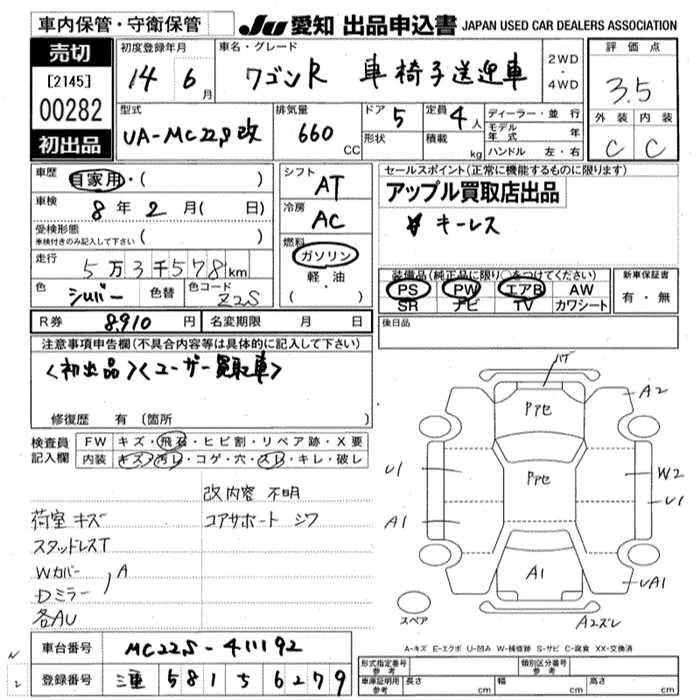 車内保管・守衛保管
JU 愛知 出品申込書 JAPAN USED CAR DEALERS ASSOCIATION
売切
[2145]
00282
初出品
初度登録年月
14 6月
車名・グレード
ワゴンR 車椅子送迎車
2WD・4WD
評価点
3.5
外装 内装
C C
型式
UA-MC22S改
排気量
660 CC
ドア 5
形状
定員 4人
積載 kg
ディーラー・並行
モデル年式 年
ハンドル 左・右
車歴 自家用・( )
車検 8年2月( 日)
受検形態
車検付きのみ記入して下さい ( )
走行 5万3千578km
色 シルバー 色替 色コード Z2S
シフト AT
冷房 AC
燃料 ガソリン
軽・油
( )
セールスポイント(正常に機能するものに限ります)
アップル買取店出品
キーレス
装備品(純正品に限り○をつけてください)
PS PW エアB AW
SR ナビ TV カワシート
新車保証書
有・無
R券 8,910円 名変期限 月 日
後日品
注意事項申告欄(不具合内容等は具体的に記入して下さい)
<初出品><ユーザー買取車>
修復歴 有 (箇所
検査員記入欄
FW キズ・飛石・ヒビ割・リペア跡・X要
内装 キズ・汚レ・コゲ・穴・スレ・キレ・破レ
改内容 不明
荷室 キズ コアサポート シワ
スタッドレスT
Wカバー
Dミラー , A
各AU
バケ
Pアセ
A2
Pアセ
U1
W2
U1
A1
A1
UA1
A2ズレ
スペア
A-キズ E-エクボ U-凹み W-補修跡 S-サビ C-腐食 XX-交換済
N
2
車台番号 MC22S-411192
登録番号 三重 581 56279
形式指定番号 参考
類別区分番号 参考
車庫証明用 参考 長さ cm 幅 cm 高さ cm